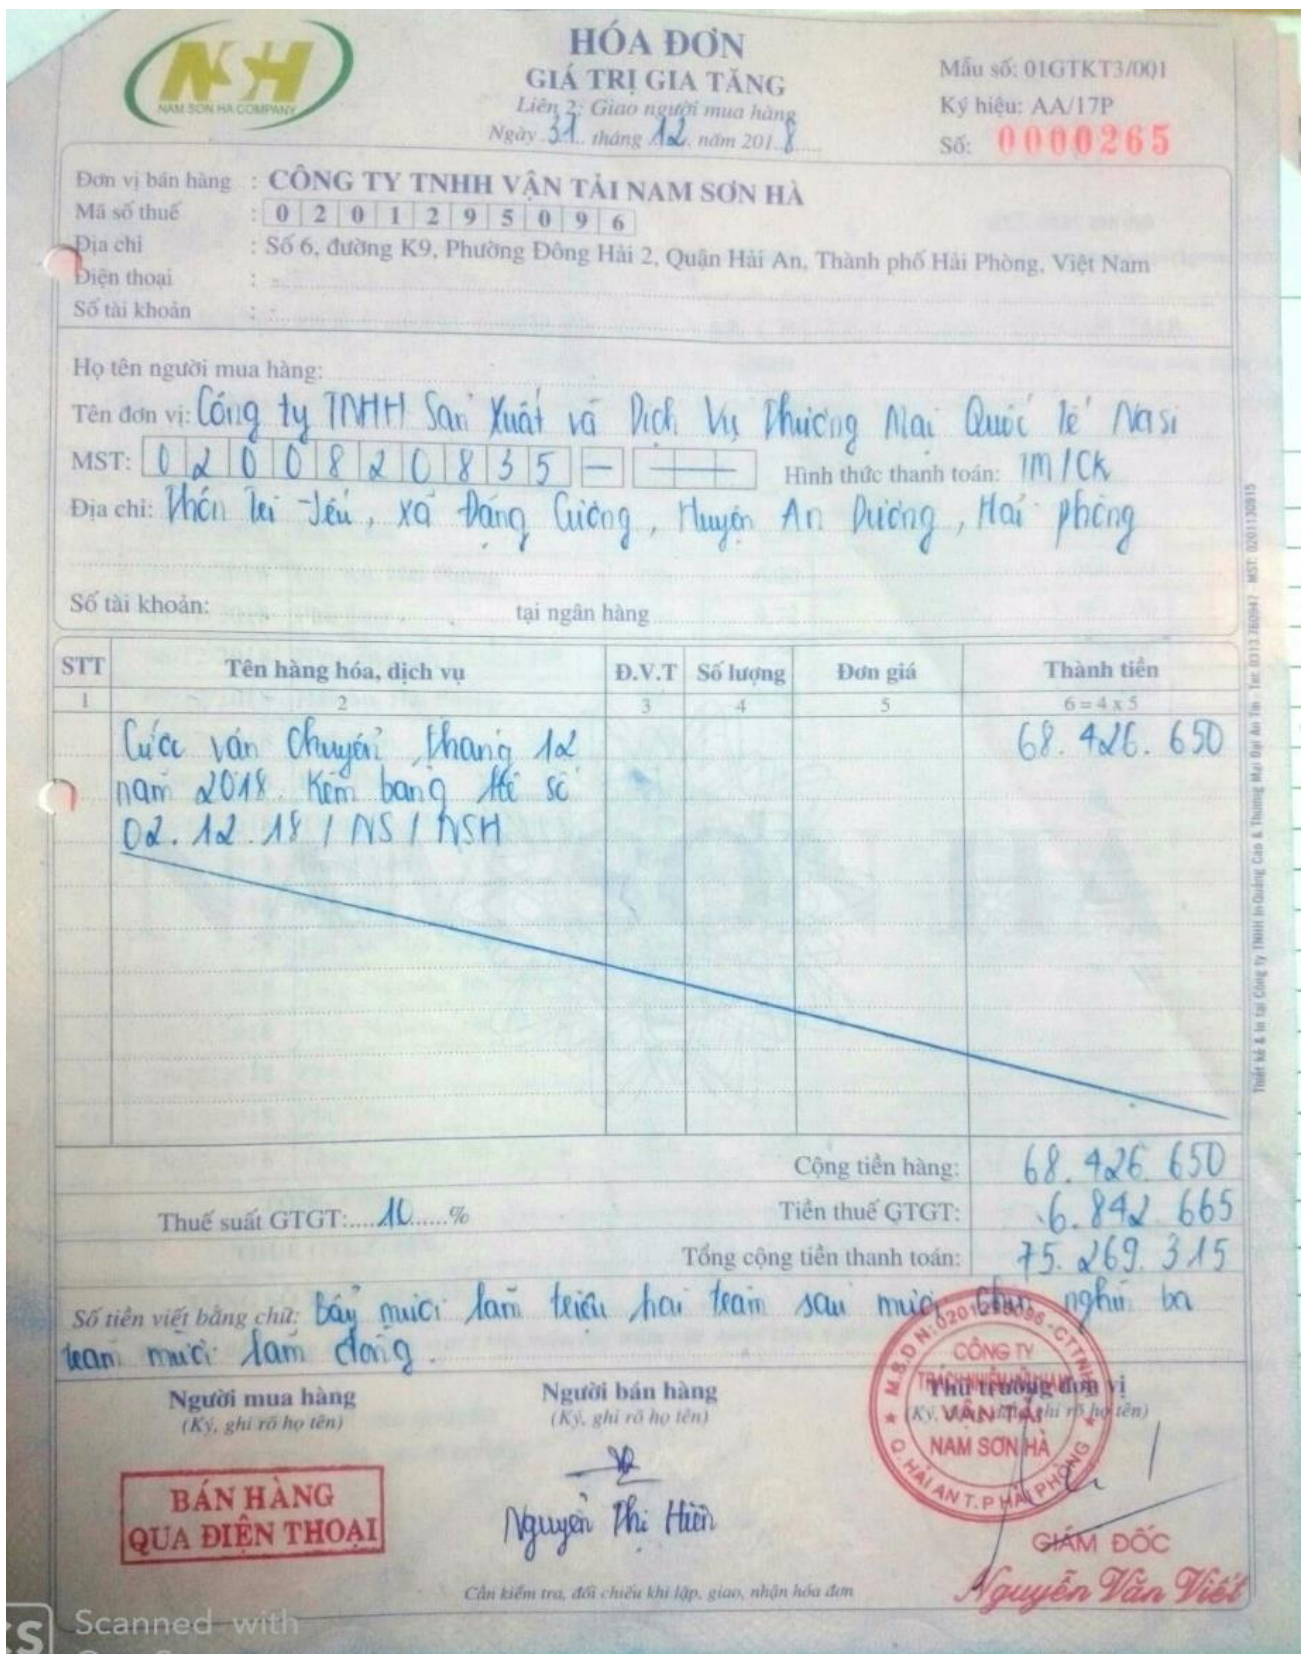 NSH
NAM SON HA COMPANY
HÓA ĐƠN
GIÁ TRỊ GIA TĂNG
Liên 2: Giao người mua hàng
Ngày 31 tháng 12 năm 2018
Mẫu số: 01GTKT3/001
Ký hiệu: AA/17P
Số: 0000265
Đơn vị bán hàng : CÔNG TY TNHH VẬN TẢI NAM SƠN HÀ
Mã số thuế : 0201295096
Địa chỉ : Số 6, đường K9, Phường Đông Hải 2, Quận Hải An, Thành phố Hải Phòng, Việt Nam
Điện thoại : -
Số tài khoản : -
Họ tên người mua hàng:
Tên đơn vị: Công ty TNHH Sản Xuất và Dịch Vụ Thương Mại Quốc tế Nasi
MST: 0200820835 - Hình thức thanh toán: TM/CK
Địa chỉ: Thôn Tri Yếu, xã Đặng Cương, Huyện An Dương, Hải phòng
Số tài khoản: tại ngân hàng
STT Tên hàng hóa, dịch vụ Đ.V.T Số lượng Đơn giá Thành tiền
1 2 3 4 5 6 = 4 x 5
Cước vận chuyển tháng 12 68.426.650
năm 2018. Kèm bảng kê số
02.12.18/NS/NSH
Cộng tiền hàng: 68.426.650
Thuế suất GTGT: 10 % Tiền thuế GTGT: 6.842.665
Tổng cộng tiền thanh toán: 75.269.315
Số tiền viết bằng chữ: Bảy mươi lăm triệu hai trăm sáu mươi chín nghìn ba
trăm mười lăm đồng.
Người mua hàng Người bán hàng Thủ trưởng đơn vị
(Ký, ghi rõ họ tên) (Ký, ghi rõ họ tên) (Ký, ghi rõ họ tên)
M.S.D.N:0201295096-C.T.T.N.H.H
CÔNG TY
TRÁCH NHIỆM HỮU HẠN
VẬN TẢI
NAM SƠN HÀ
Q. HẢI AN T.P HẢI PHÒNG
BÁN HÀNG
QUA ĐIỆN THOẠI
Nguyễn Thị Hiền
GIÁM ĐỐC
Nguyễn Văn Viết
Cần kiểm tra, đối chiếu khi lập, giao, nhận hóa đơn
Thiết kế & In tại Công ty TNHH In Quảng Cáo & Thương Mại Đại An Tín - Tel: 0313.760947 - MST: 0201130915
CS Scanned with